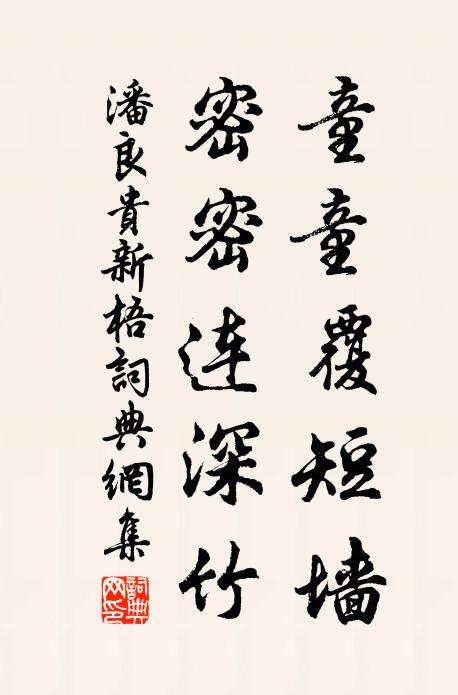 童童覆短墙
密密连深竹
潘良貴新梧詞典網集
詞典網印